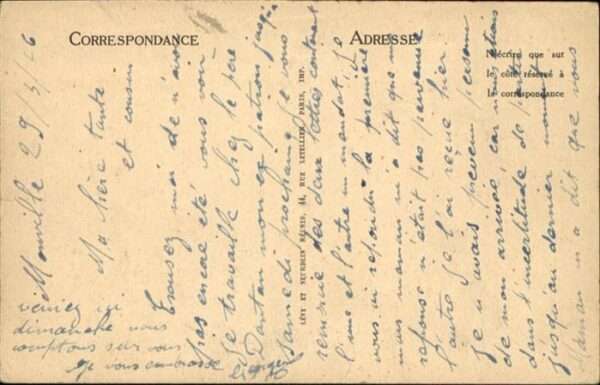 CORRESPONDANCE
ADRESSE
N'écrire que sur
le côté réservé à
la correspondance
LÉVY ET NEURDEIN RÉUNIS, 44, RUE LETELLIER, PARIS, IMP.
Monville 29/5/26
Ma chère tante
et cousin
Excusez moi de n'avoir
pas encore été vous voir
Je travaille chez le père
Dantan mon occupation jusqu'à
Samedi prochain. Je vous
remercie des deux lettres contenant
l'une et l'autre un mandat, Je
vous ai répondu la première
mais maman m'a dit que ma
réponse n'était pas parvenue
l'autre je l'ai reçue hier
je n'avais prévenu personne
de mon arrivée, car nous étions
dans l'incertitude de partir
jusqu'au dernier moment
Maman m'a dit que vous
veniez ici
dimanche nous
comptons sur vous
Je vous embrasse